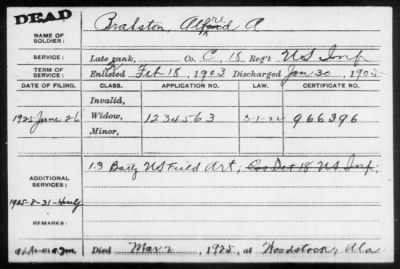 DEAD
NAME OF SOLDIER: Brabston, Alfred A
SERVICE: Late rank, Co. C, 18 Reg't US Inf
TERM OF SERVICE: Enlisted Feb 18, 1903 Discharged Jan 30, 1905
DATE OF FILING. CLASS. APPLICATION NO. LAW. CERTIFICATE NO.
Invalid,
1925 June 26 Widow, 1234563 5-1-26 966396
Minor,
ADDITIONAL SERVICES: 13 Batty US Field Art, Cas Det 18 US Inf.
1925-8-31-
REMARKS:
Died Mar 2 1925, at Woodstock, Ala